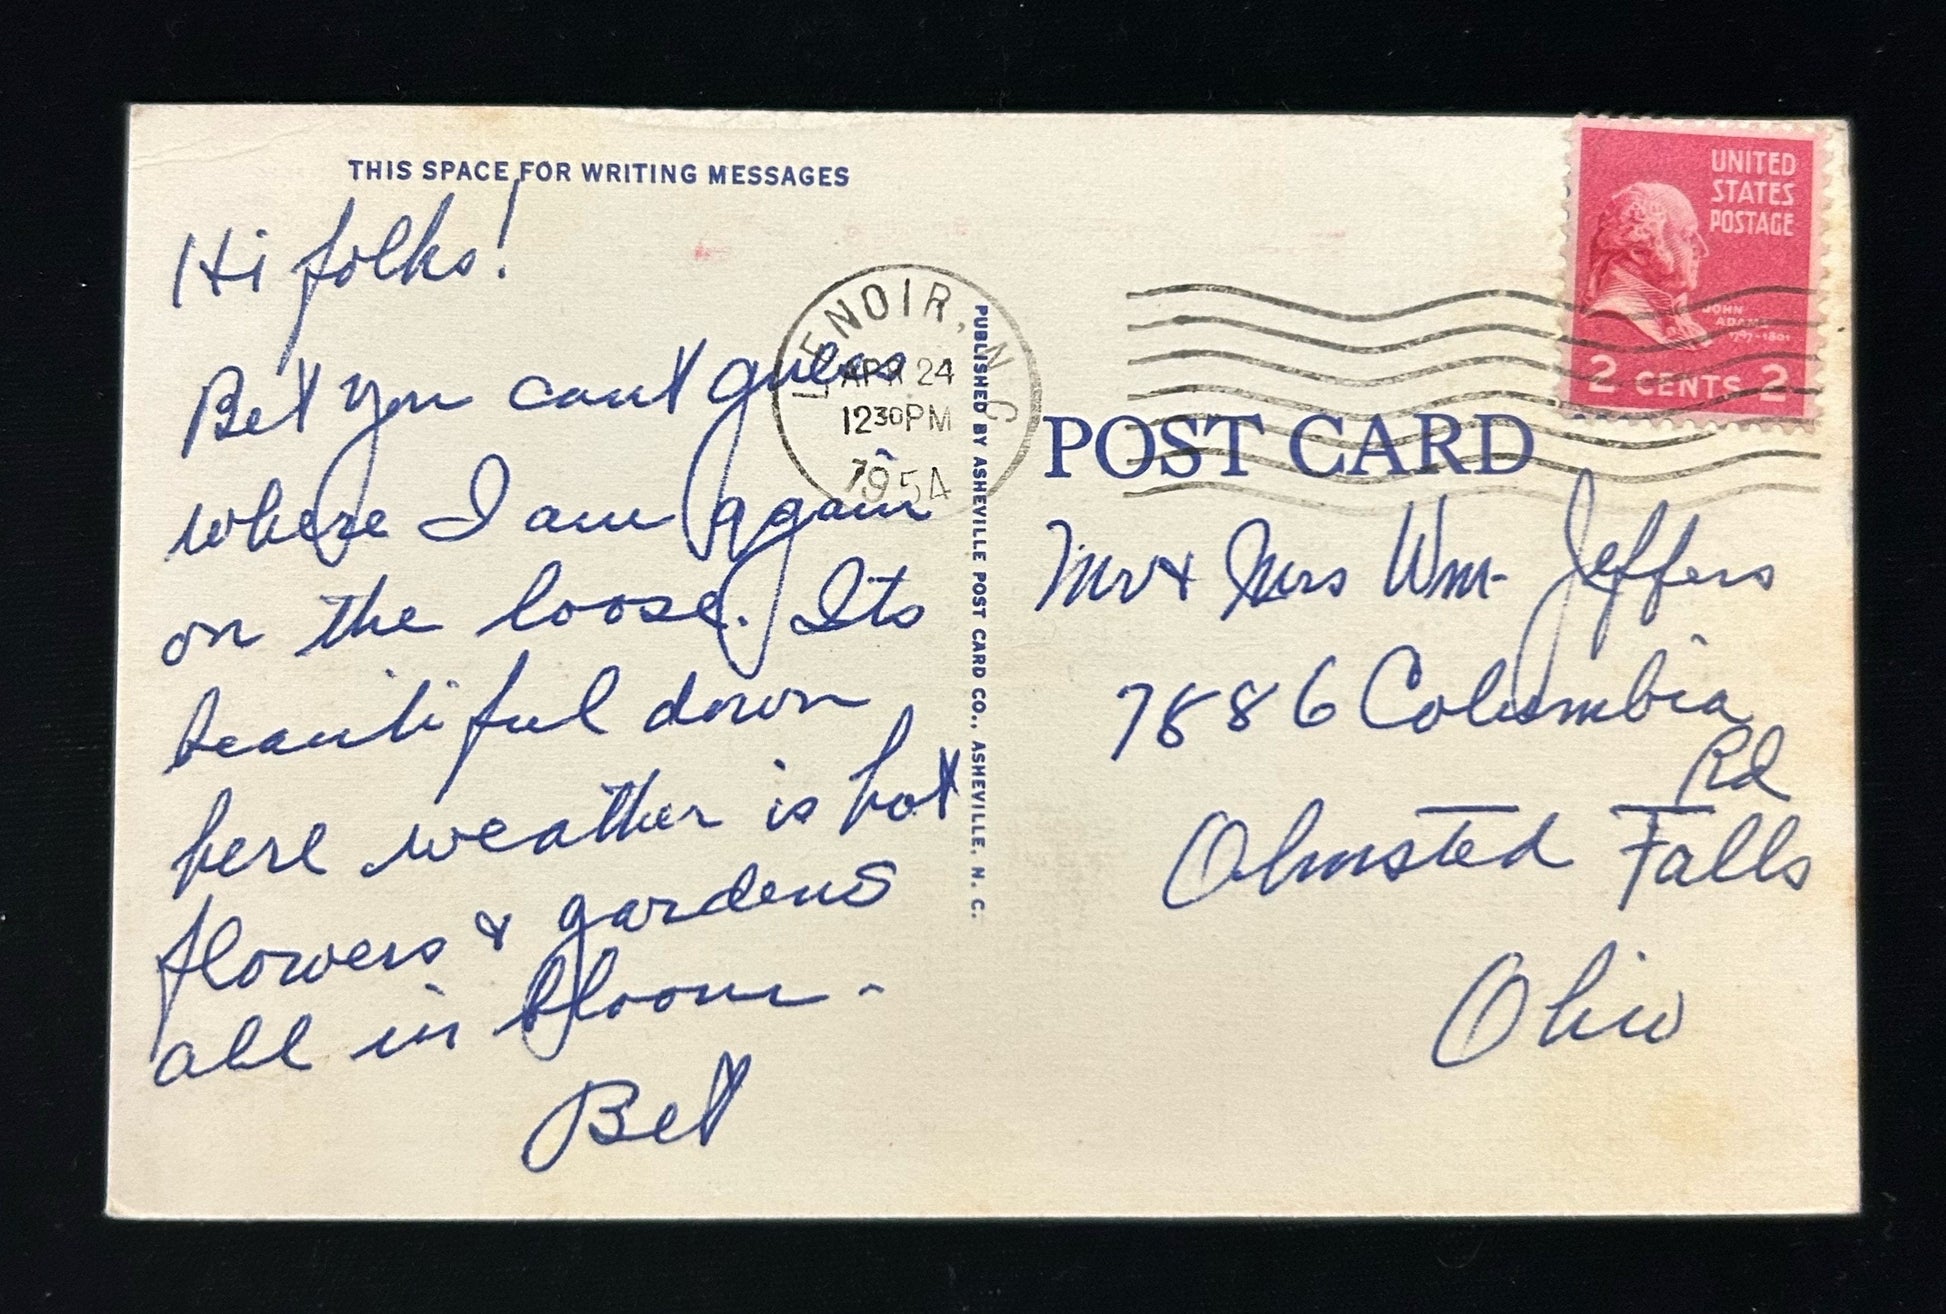 THIS SPACE FOR WRITING MESSAGES
Hi folks!
Bet you cant guess
where I am again
on the loose. Its
beautiful down
here weather is hot
flowers & gardens
all in bloom -
Bet
LENOIR, N.C.
APR 24
1230PM
1954
PUBLISHED BY ASHEVILLE POST CARD CO., ASHEVILLE, N. C.
UNITED
STATES
POSTAGE
JOHN
ADAMS
1797-1801
2 CENTS 2
POST CARD
Mr & Mrs Wm. Jeffers
7886 Columbia
Rd
Olmsted Falls
Ohio